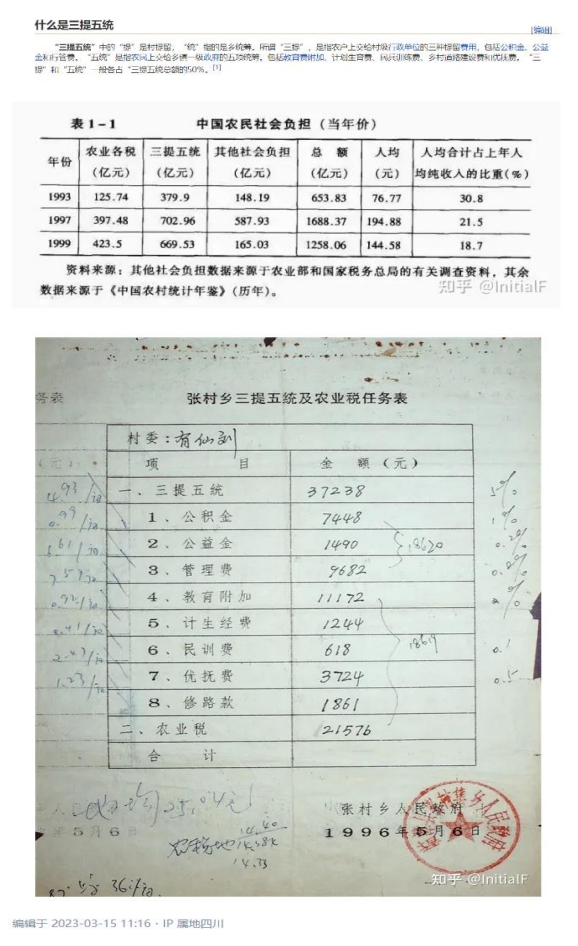 什么是三提五统
[编辑]
“三提五统”中的“提”是村提留，“统”指的是乡统筹。所谓“三提”，是指农户上交给村级行政单位的三种提留费用，包括公积金、公益
金和行管费。“五统”是指农民上交给乡镇一级政府的五项统筹。包括教育费附加、计划生育费、民兵训练费、乡村道路建设费和优抚费。“三
提”和“五统”一般各占“三提五统总额的50%。[1]
表 1-1 中国农民社会负担（当年价）
年份 农业各税（亿元） 三提五统（亿元） 其他社会负担（亿元） 总额（亿元） 人均（元） 人均合计占上年人均纯收入的比重(%)
1993 125.74 379.9 148.19 653.83 76.77 30.8
1997 397.48 702.96 587.93 1688.37 194.88 21.5
1999 423.5 669.53 165.03 1258.06 144.58 18.7
资料来源：其他社会负担数据来源于农业部和国家税务总局的有关调查资料，其余
数据来源于《中国农村统计年鉴》(历年)。
知乎 @InitialF
务表
张村乡三提五统及农业税任务表
村委：有仙
项目 金额（元）
一、三提五统 37238 5%
1、公积金 7448 1%
2、公益金 1490 18620 0.2%
3、管理费 9682
4、教育附加 11172
5、计生经费 1244
6、民训费 618 18619 0.1
7、优抚费 3724 0.5
8、修路款 1861
二、农业税 21576
合计
张村乡人民政府
1996年5月6日
年5月6
14.40
14.33
知乎 @InitialF
编辑于 2023-03-15 11:16 · IP 属地四川